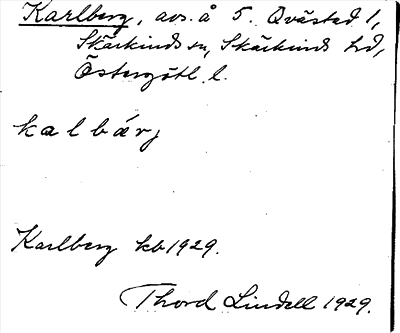 Karlberg, avs. å 5. Qvästad 1,
Skärkinds sn, Skärkinds hd,
Östergötl. l.
kalbárj
Karlberg kb 1929.
Thord Lindell 1929.